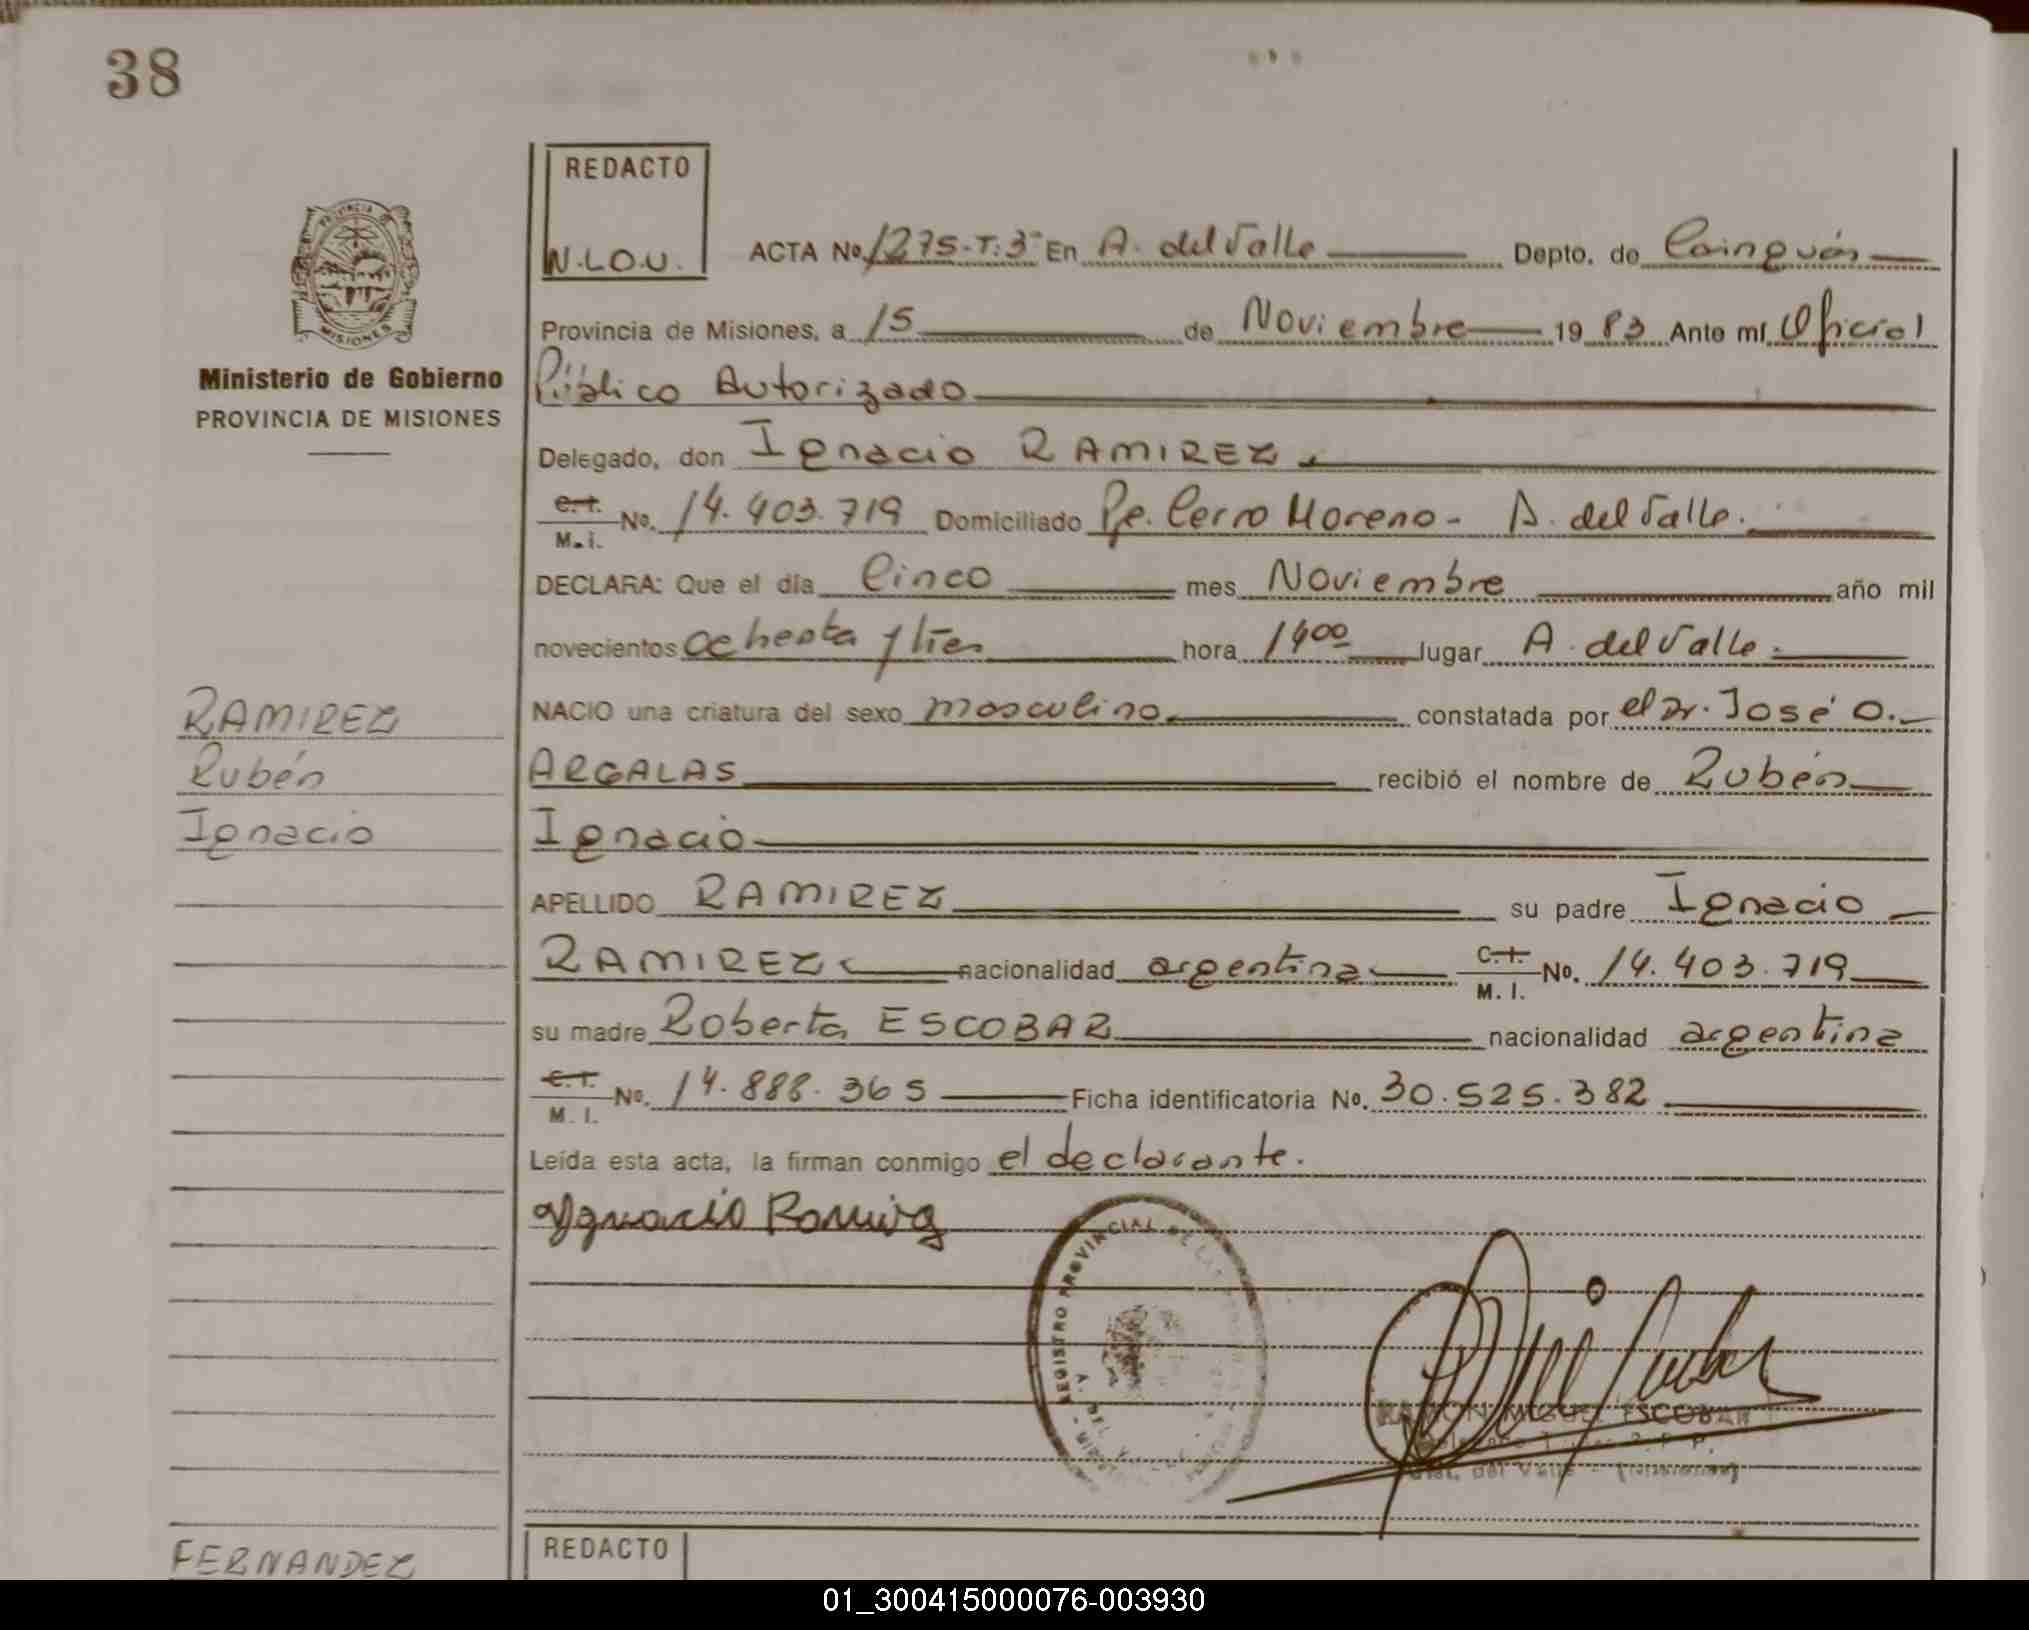 38
REDACTO
N.L.O.U.
ACTA No. 1275-T:3º En A. del Valle Depto. de Cainguás
PROVINCIA DE
MISIONES
Ministerio de Gobierno
PROVINCIA DE MISIONES
Provincia de Misiones, a 15 de Noviembre 1983 Ante mí Oficial
Público Autorizado
Delegado, don Ignacio RAMIREZ.
C.I.
M.I. No. 14.403.719 Domiciliado Pje. Cerro Moreno - A. del Valle.
DECLARA: Que el día Cinco mes Noviembre año mil
novecientos ochenta y tres hora 1400 lugar A. del Valle.
RAMIREZ
Rubén
Ignacio
NACIO una criatura del sexo masculino constatada por el Dr. José O.
ARGALAS recibió el nombre de Rubén
Ignacio
APELLIDO RAMIREZ su padre Ignacio
RAMIREZ nacionalidad argentina C.I.
M.I. No. 14.403.719
su madre Roberta ESCOBAR nacionalidad argentina
C.I.
M.I. No. 14.888.365 Ficha identificatoria No. 30.525.382
Leída esta acta, la firman conmigo el declarante.
Ygnacio Ramirez
REGISTRO PROVINCIAL DE LAS
A. DEL
RAMON MIGUEL ESCOBAR
del Valle - (Misiones)
FERNANDEZ
REDACTO
01_300415000076-003930